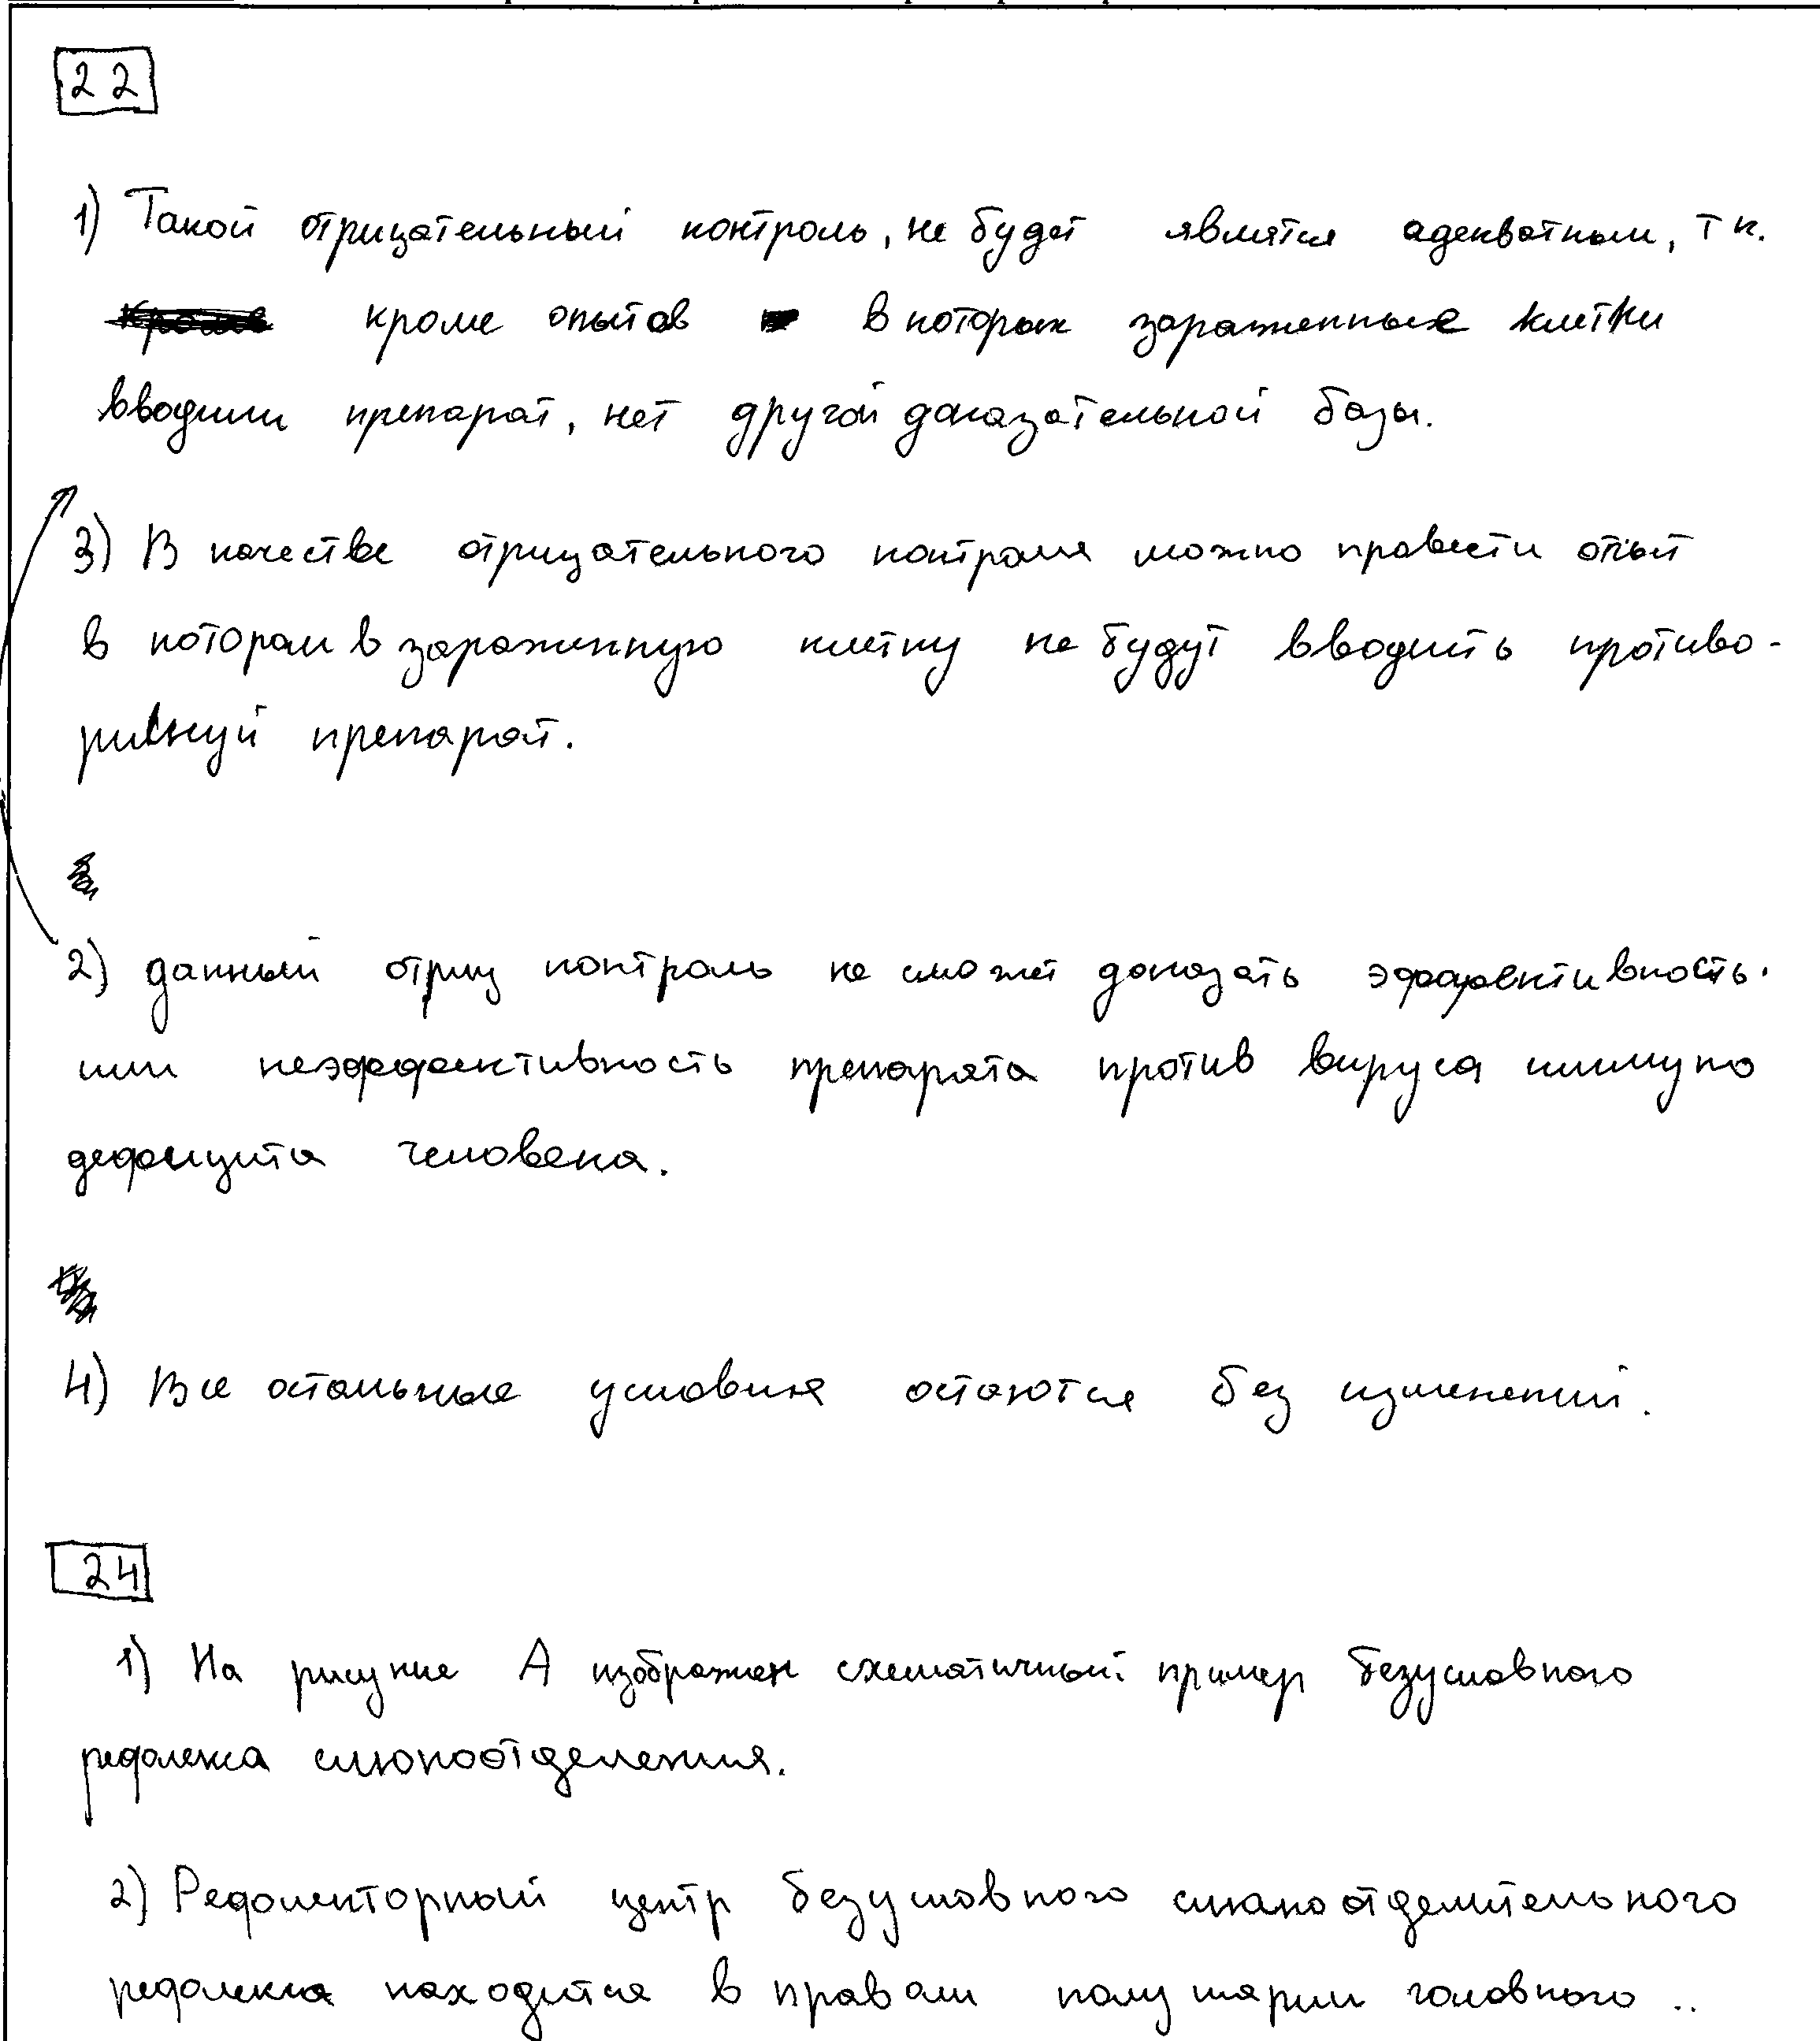 22
1) Такой отрицательный контроль, не будет являтся адекватным, т к.
кроме опытов в которых зараженные клетки
вводили препарат, нет другой доказательной базы.
3) В качестве отрицательного контроля можно провести опыт
в котором в зараженную клетку не будут вводить противо-
ривный препарат.
2) данный отриц контроль не сможет доказать эффективность.
или неэффективность препарата против вируса иммуно
дефицита человека.
4) Все остальные условия остаются без изменений.
24
1) На рисунке А изображен схематичный пример безусловного
рефлекса слюноотделения.
2) Рефлекторный центр безусловного слюноотделительного
рефлекса находится в правом полушарии головного ..